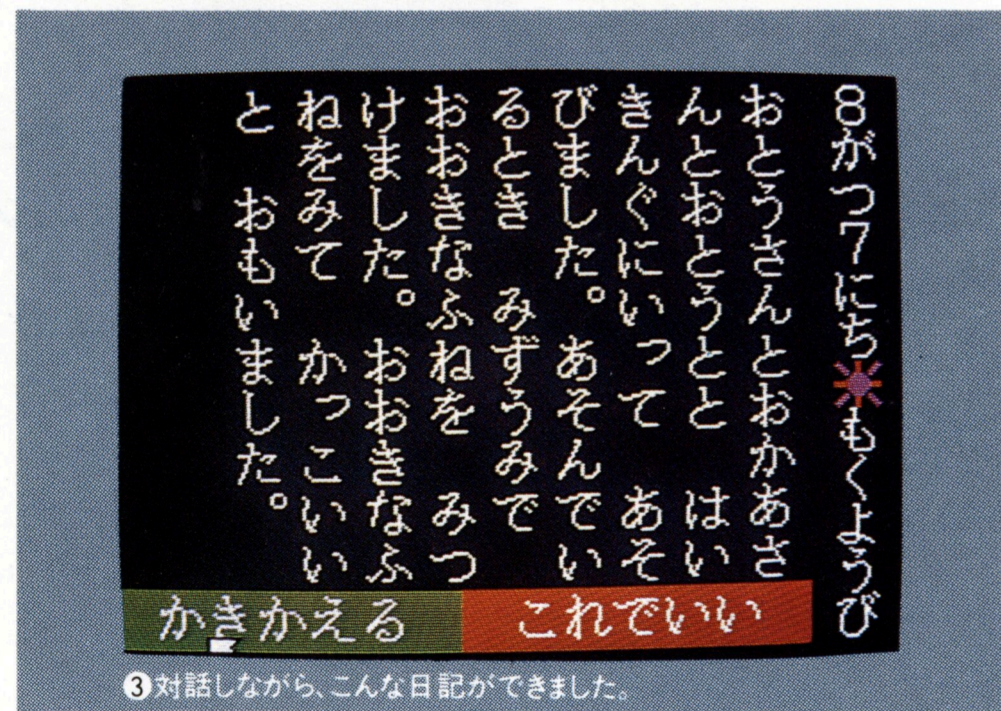 8がつ7にち もくようび
おとうさんとおかあさ
んとおとうとと　はい
きんぐにいって　あそ
びました。あそんでい
るとき　みずうみで
おおきなふねを　みつ
けました。おおきなふ
ねをみて　かっこいい
と　おもいました。
かきかえる
これでいい
❸対話しながら、こんな日記ができました。